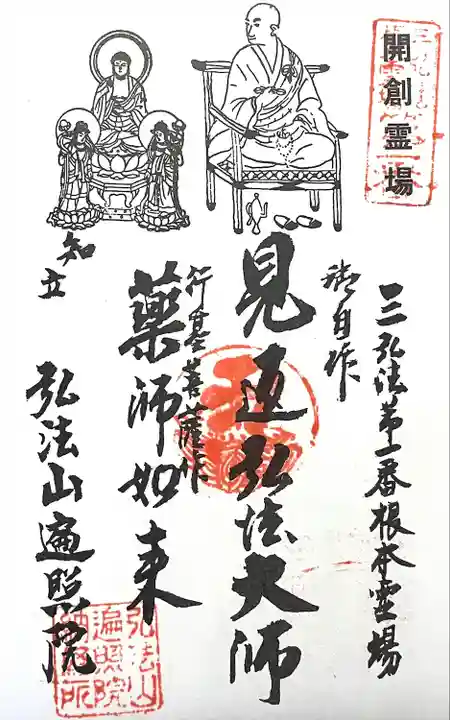 開創霊場
三弘法第一番根本霊場
御自作
見返弘法大師
行基菩薩作
薬師如来
知立
弘法山遍照院
弘法山
遍照院
納経所